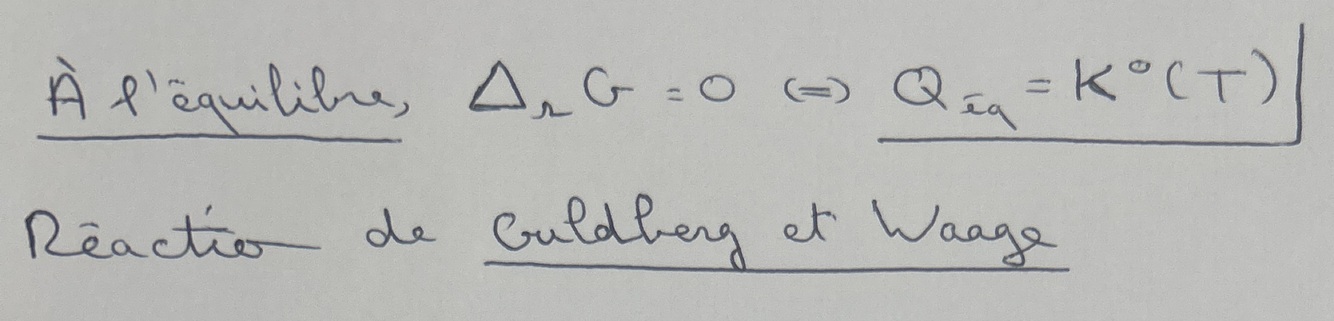 À l'équilibre, Δ_r G = 0 ⇔ Q_éq = K°(T)
Réaction de Guldberg et Waage